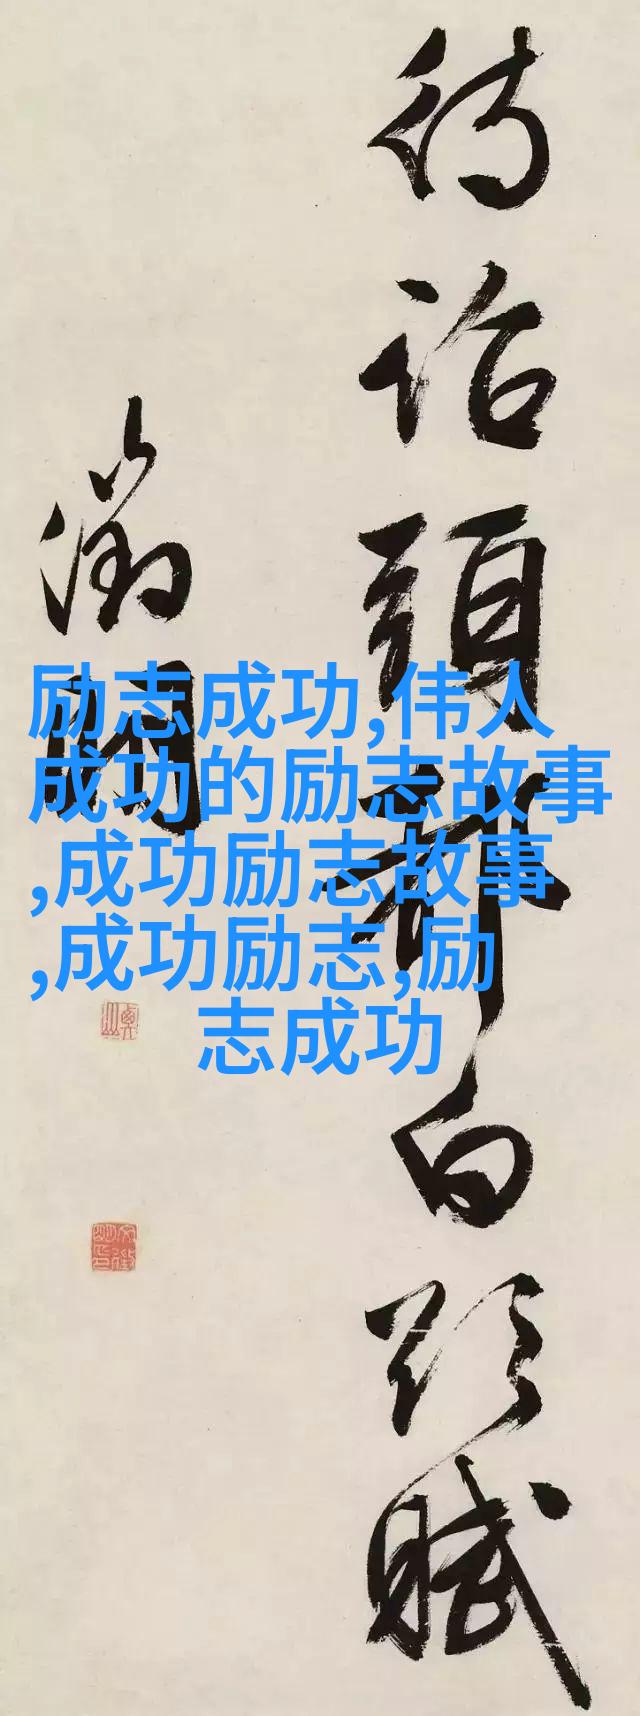 詔頭
白
賦
徵明
励志成功,伟人
成功的励志故事
,成功励志故事
,成功励志,励
志成功